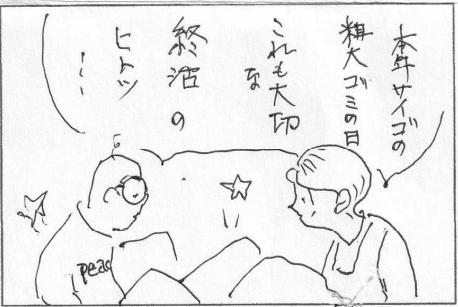 本年サイゴの
粗大ゴミの日
これも大切
な
終活の
ヒトツ
peac